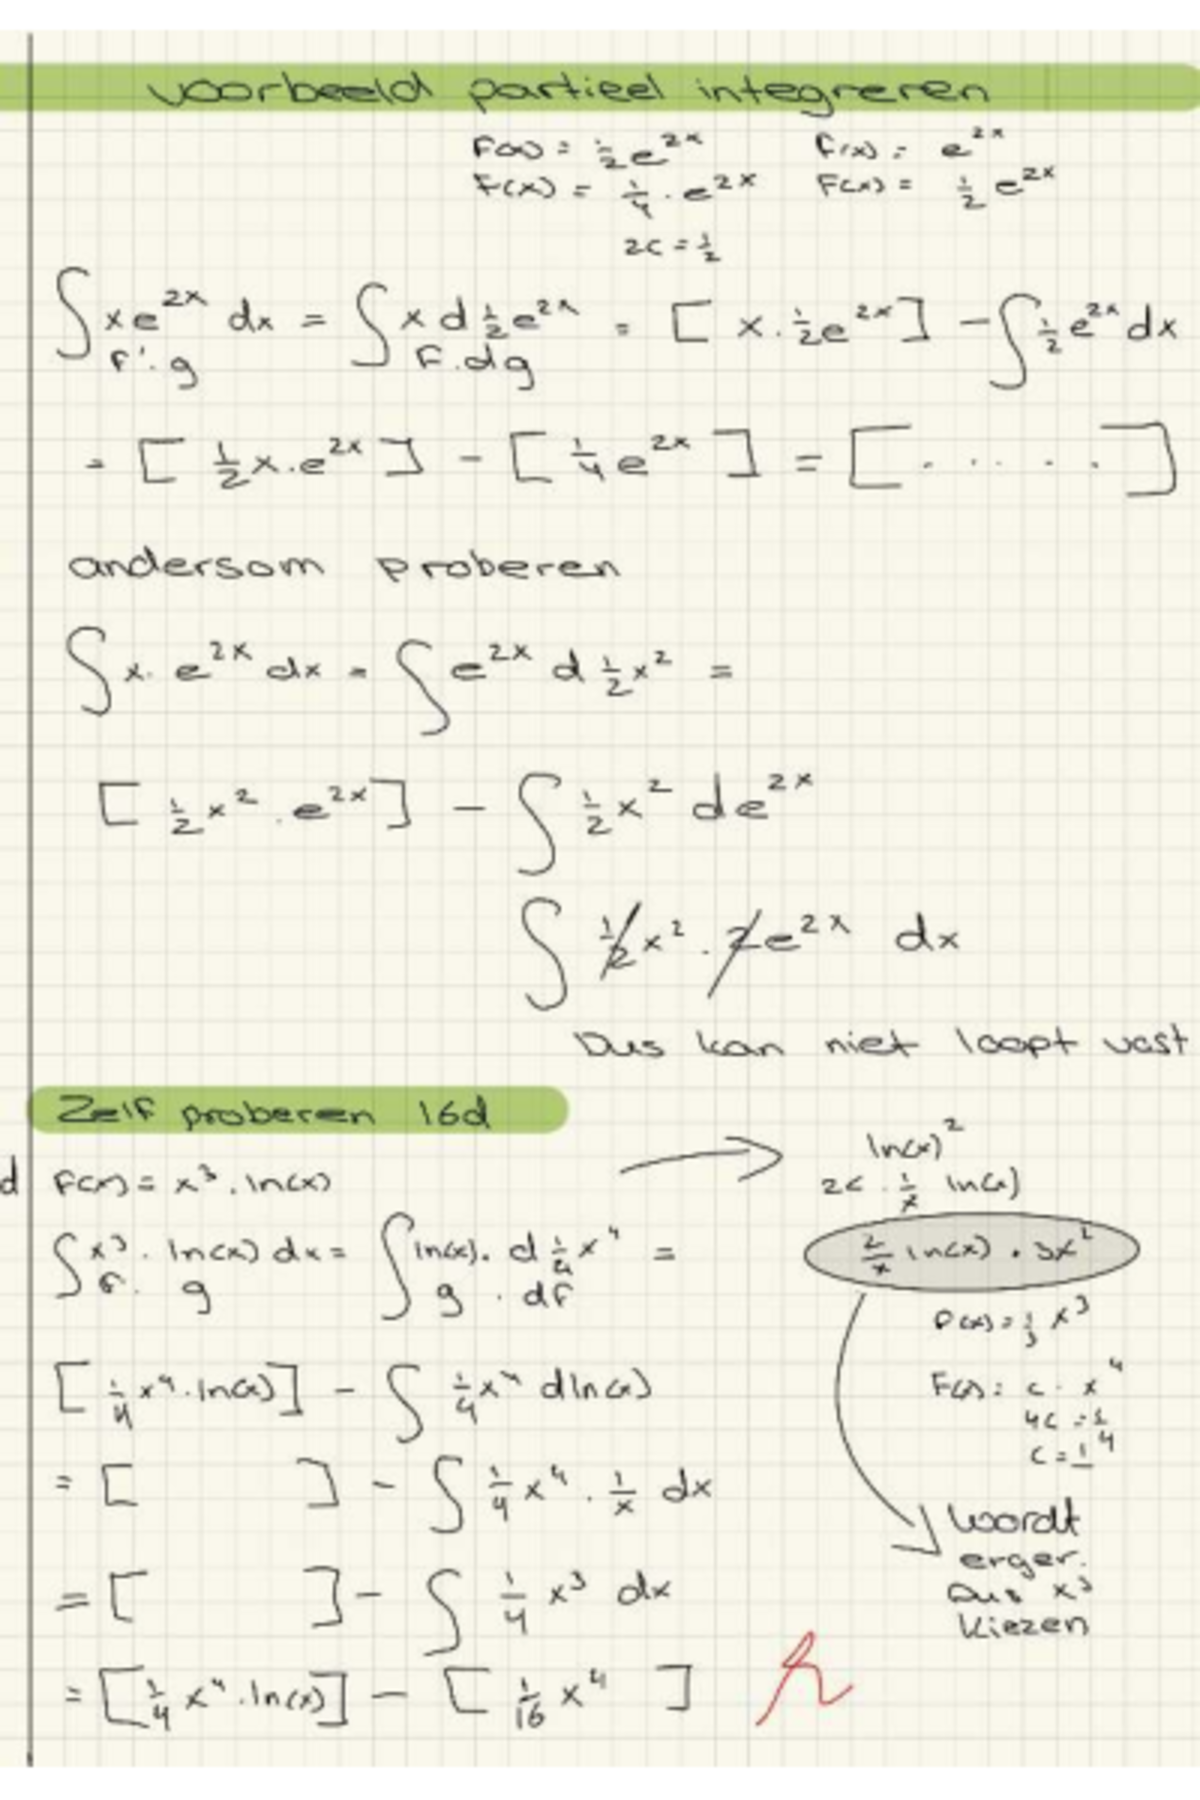 voorbeeld partieel integreren
F(x) = ½e^{2x}    f(x) = e^{2x}
F(x) = ¼ · e^{2x}    F(x) = ½ e^{2x}
2c = ½
∫ x e^{2x} dx = ∫ x d ½e^{2x} = [ x · ½e^{2x} ] - ∫ ½ e^{2x} dx
f' · g    F · dg
= [ ½x · e^{2x} ] - [ ¼ e^{2x} ] = [ · · · · · ]
andersom proberen
∫ x · e^{2x} dx = ∫ e^{2x} d ½x² =
[ ½x² · e^{2x} ] - ∫ ½x² de^{2x}
∫ ½x² · 2e^{2x} dx
Dus kan niet loopt vast
Zelf proberen 16d
d f(x) = x³ · ln(x)
∫ x³ · ln(x) dx = ∫ ln(x) · d ¼x⁴ =
f · g    g · df
[ ¼x⁴ · ln(x) ] - ∫ ¼x⁴ dln(x)
= [ ] - ∫ ¼x⁴ · 1/x dx
= [ ] - ∫ ¼ x³ dx
= [ ¼ x⁴ · ln(x) ] - [ 1/16 x⁴ ]
ln(x)²
1/x ln(x)
2/x ln(x) · 3x²
⅓ x³
F(x) = c · x⁴
4c = 1
wordt
erger.
Dus x³
kiezen